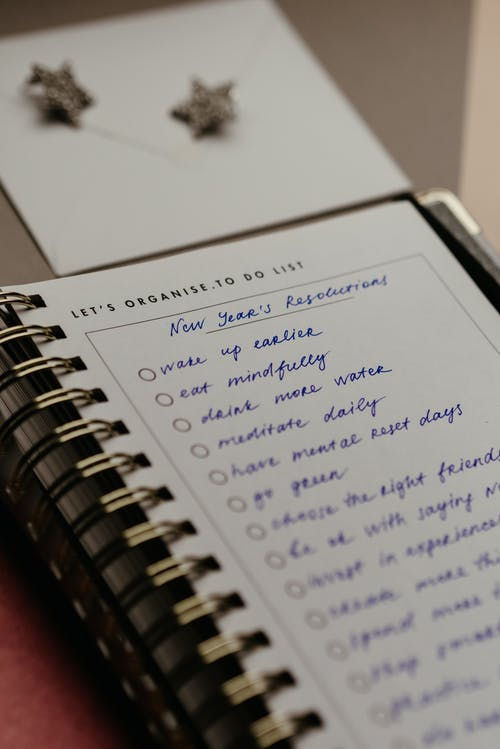 LET'S ORGANISE. TO DO LIST
New Year's Resolutions
wake up earlier
eat mindfully
drink more water
meditate daily
have mental reset days
go green
choose the right friends
be ok with saying No
invest in experiences
create more
spend more